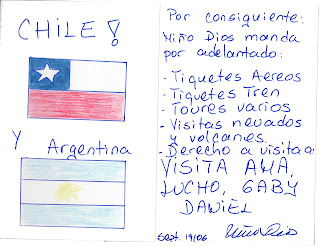 CHILE!
Y Argentina
Por consiguiente:
Niño Dios manda
por adelantado:
- Tiquetes Aereos
- Tiquetes Tren
- Toures varios
- Visitas nevados
y volcanes
- Derecho a visita a:
VISITA ANA,
LUCHO, GABY
DANIEL
Sept. 19/06